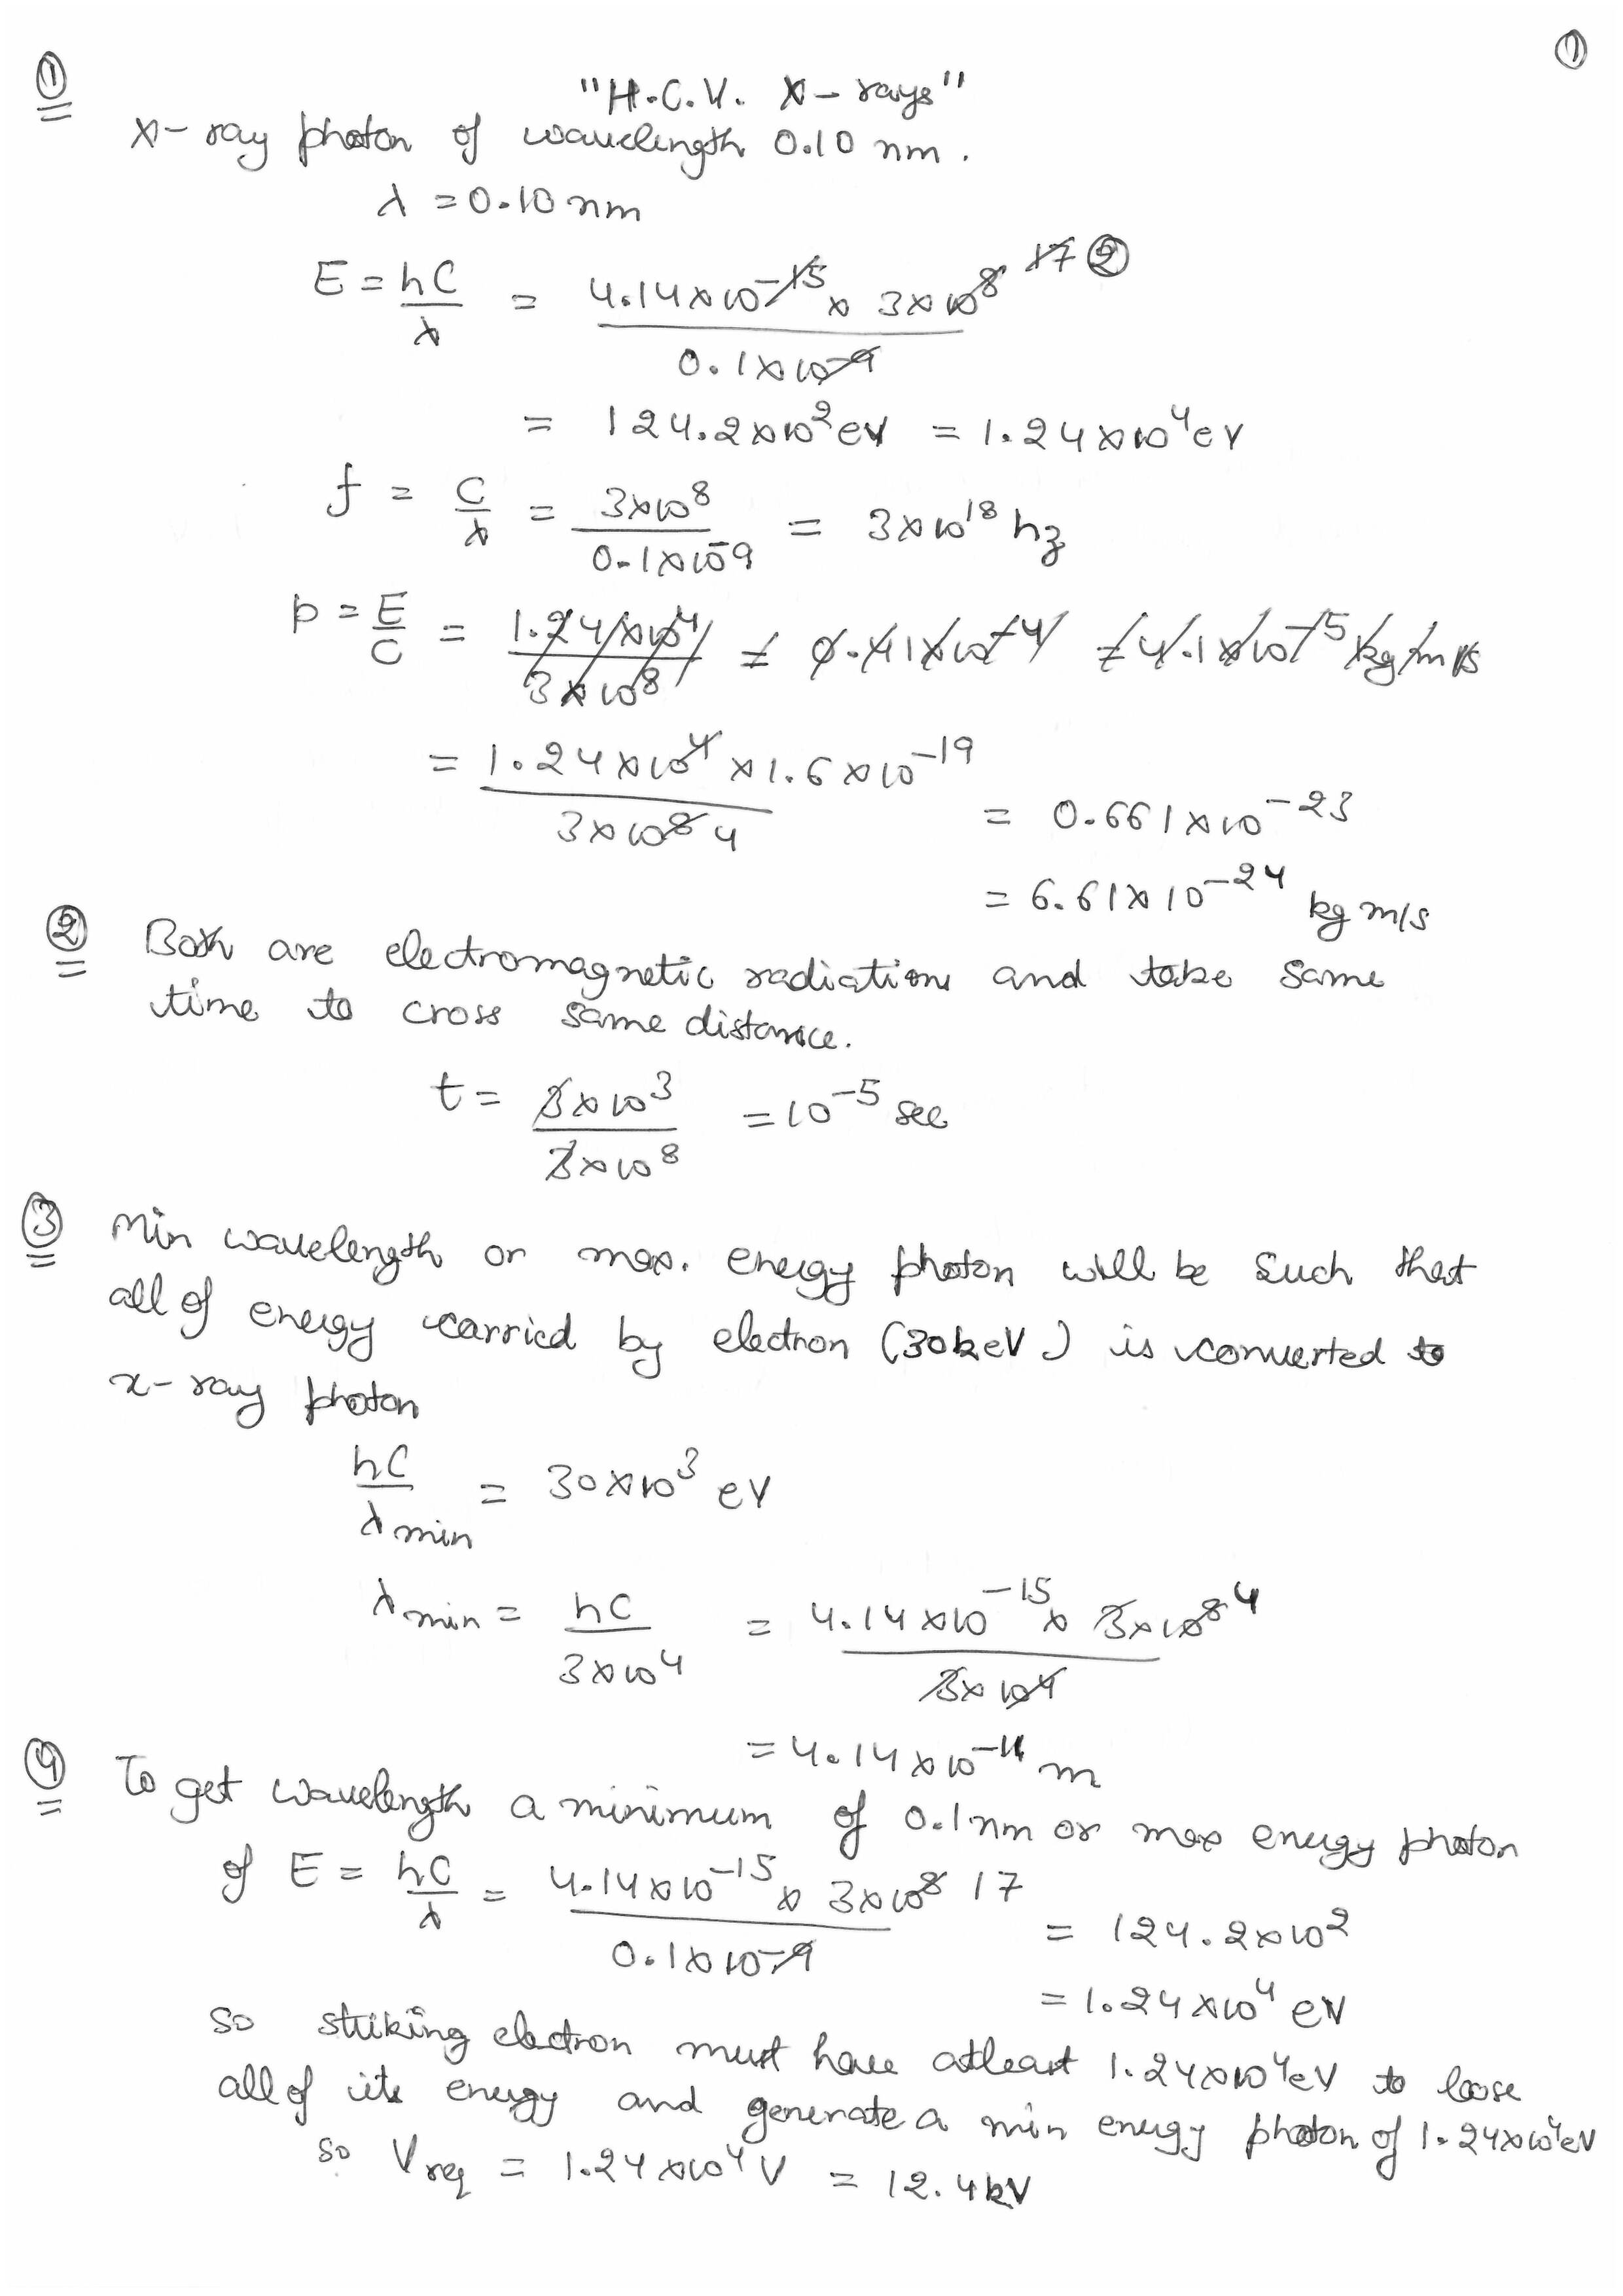 ① ①
"H.C.V. X-rays"
X-ray photon of wavelength 0.10 nm.
λ = 0.10 nm
E = hC/λ = 4.14×10^-15 × 3×10^8 / 0.1×10^-9 17 ②
= 124.2×10^2 eV = 1.24×10^4 eV
f = C/λ = 3×10^8 / 0.1×10^-9 = 3×10^18 hz
p = E/C = 1.24×10^4 / 3×10^8 = 0.41×10^-4 = 4.1×10^-5 kg m/s
= 1.24×10^4 × 1.6×10^-19 / 3×10^8 4 = 0.661×10^-23
= 6.61×10^-24 kg m/s
② Both are electromagnetic radiations and take same
time to cross same distance.
t = 3×10^3 / 3×10^8 = 10^-5 sec
③ Min wavelength or max. energy photon will be such that
all of energy carried by electron (30keV) is converted to
x-ray photon
hC/λmin = 30×10^3 eV
λmin = hC / 3×10^4 = 4.14×10^-15 × 3×10^8 4 / 3×10^4
= 4.14×10^-11 m
④ To get wavelength a minimum of 0.1nm or max energy photon
of E = hC/λ = 4.14×10^-15 × 3×10^8 17 / 0.1×10^-9 = 124.2×10^2
= 1.24×10^4 eV
so striking electron must have atleast 1.24×10^4eV to loose
all of its energy and generate a min energy photon of 1.24×10^4eV
so Vreq = 1.24×10^4 V = 12.4kV